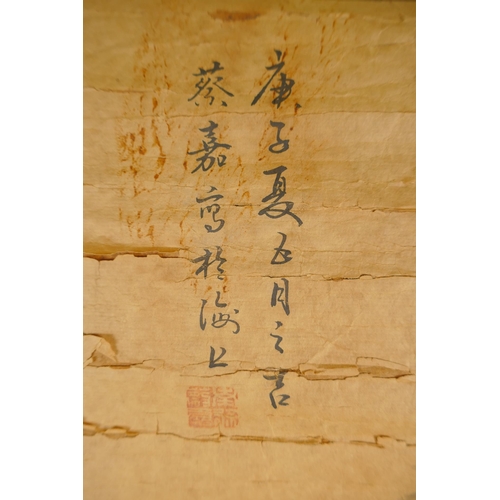 庚子夏五月之吉
蔡嘉寫於海上